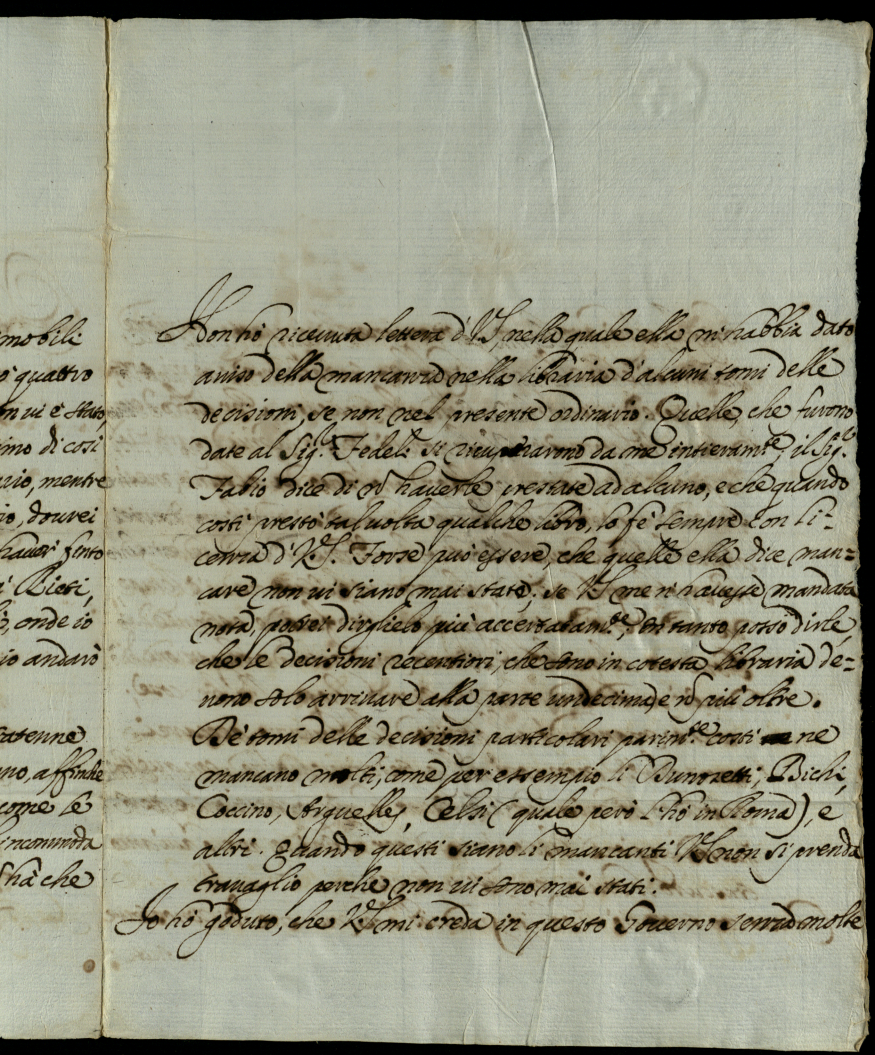 mobili
quattro
n ui è stato,
imo di così
ario, mentre
io, dourei
hauer
Bieti,
onde io
io andarò
ratenne
no, affinche
come le
incommoda
hà che
Non hò riceuuta lettera d'VS nella quale ella m'habbia dato
auiso della mancanza nella libraria d'alcuni tomi delle
decisioni, se non nel presente ordinario. Quelle, che furono
date al Sig.r Fedeli si ricuperarono da me intieram.te, il Sig.r
Fabio dice di nõ hauerle prestate ad alcuno, e che quando
costì prestò taluolta qualche libro, lo fè sempre con li=
cenza d'VS. Forse può essere, che quelle ella dice man=
care non ui siano mai state; se VS me n'hauesse mandata
nota, potrei dirglielo più accertatam.te; in tanto posso dirle,
che le decisioni recentiori, che sono in cotesta libraria de=
uono solo arriuare alla parte undecima, e nõ più oltre.
De tomi delle decisioni particolari parim.te costì ne
mancano molti, come per essempio li Dunozetti, Bichi,
Coccino, Arguelles, Celsi (quale però l'hò in Roma), e
altri. Quando questi siano li mancanti VS non si prenda
trauaglio perche non ui sono mai stati.
Io hò goduto, che VS mi creda in questo Gouerno senza molte